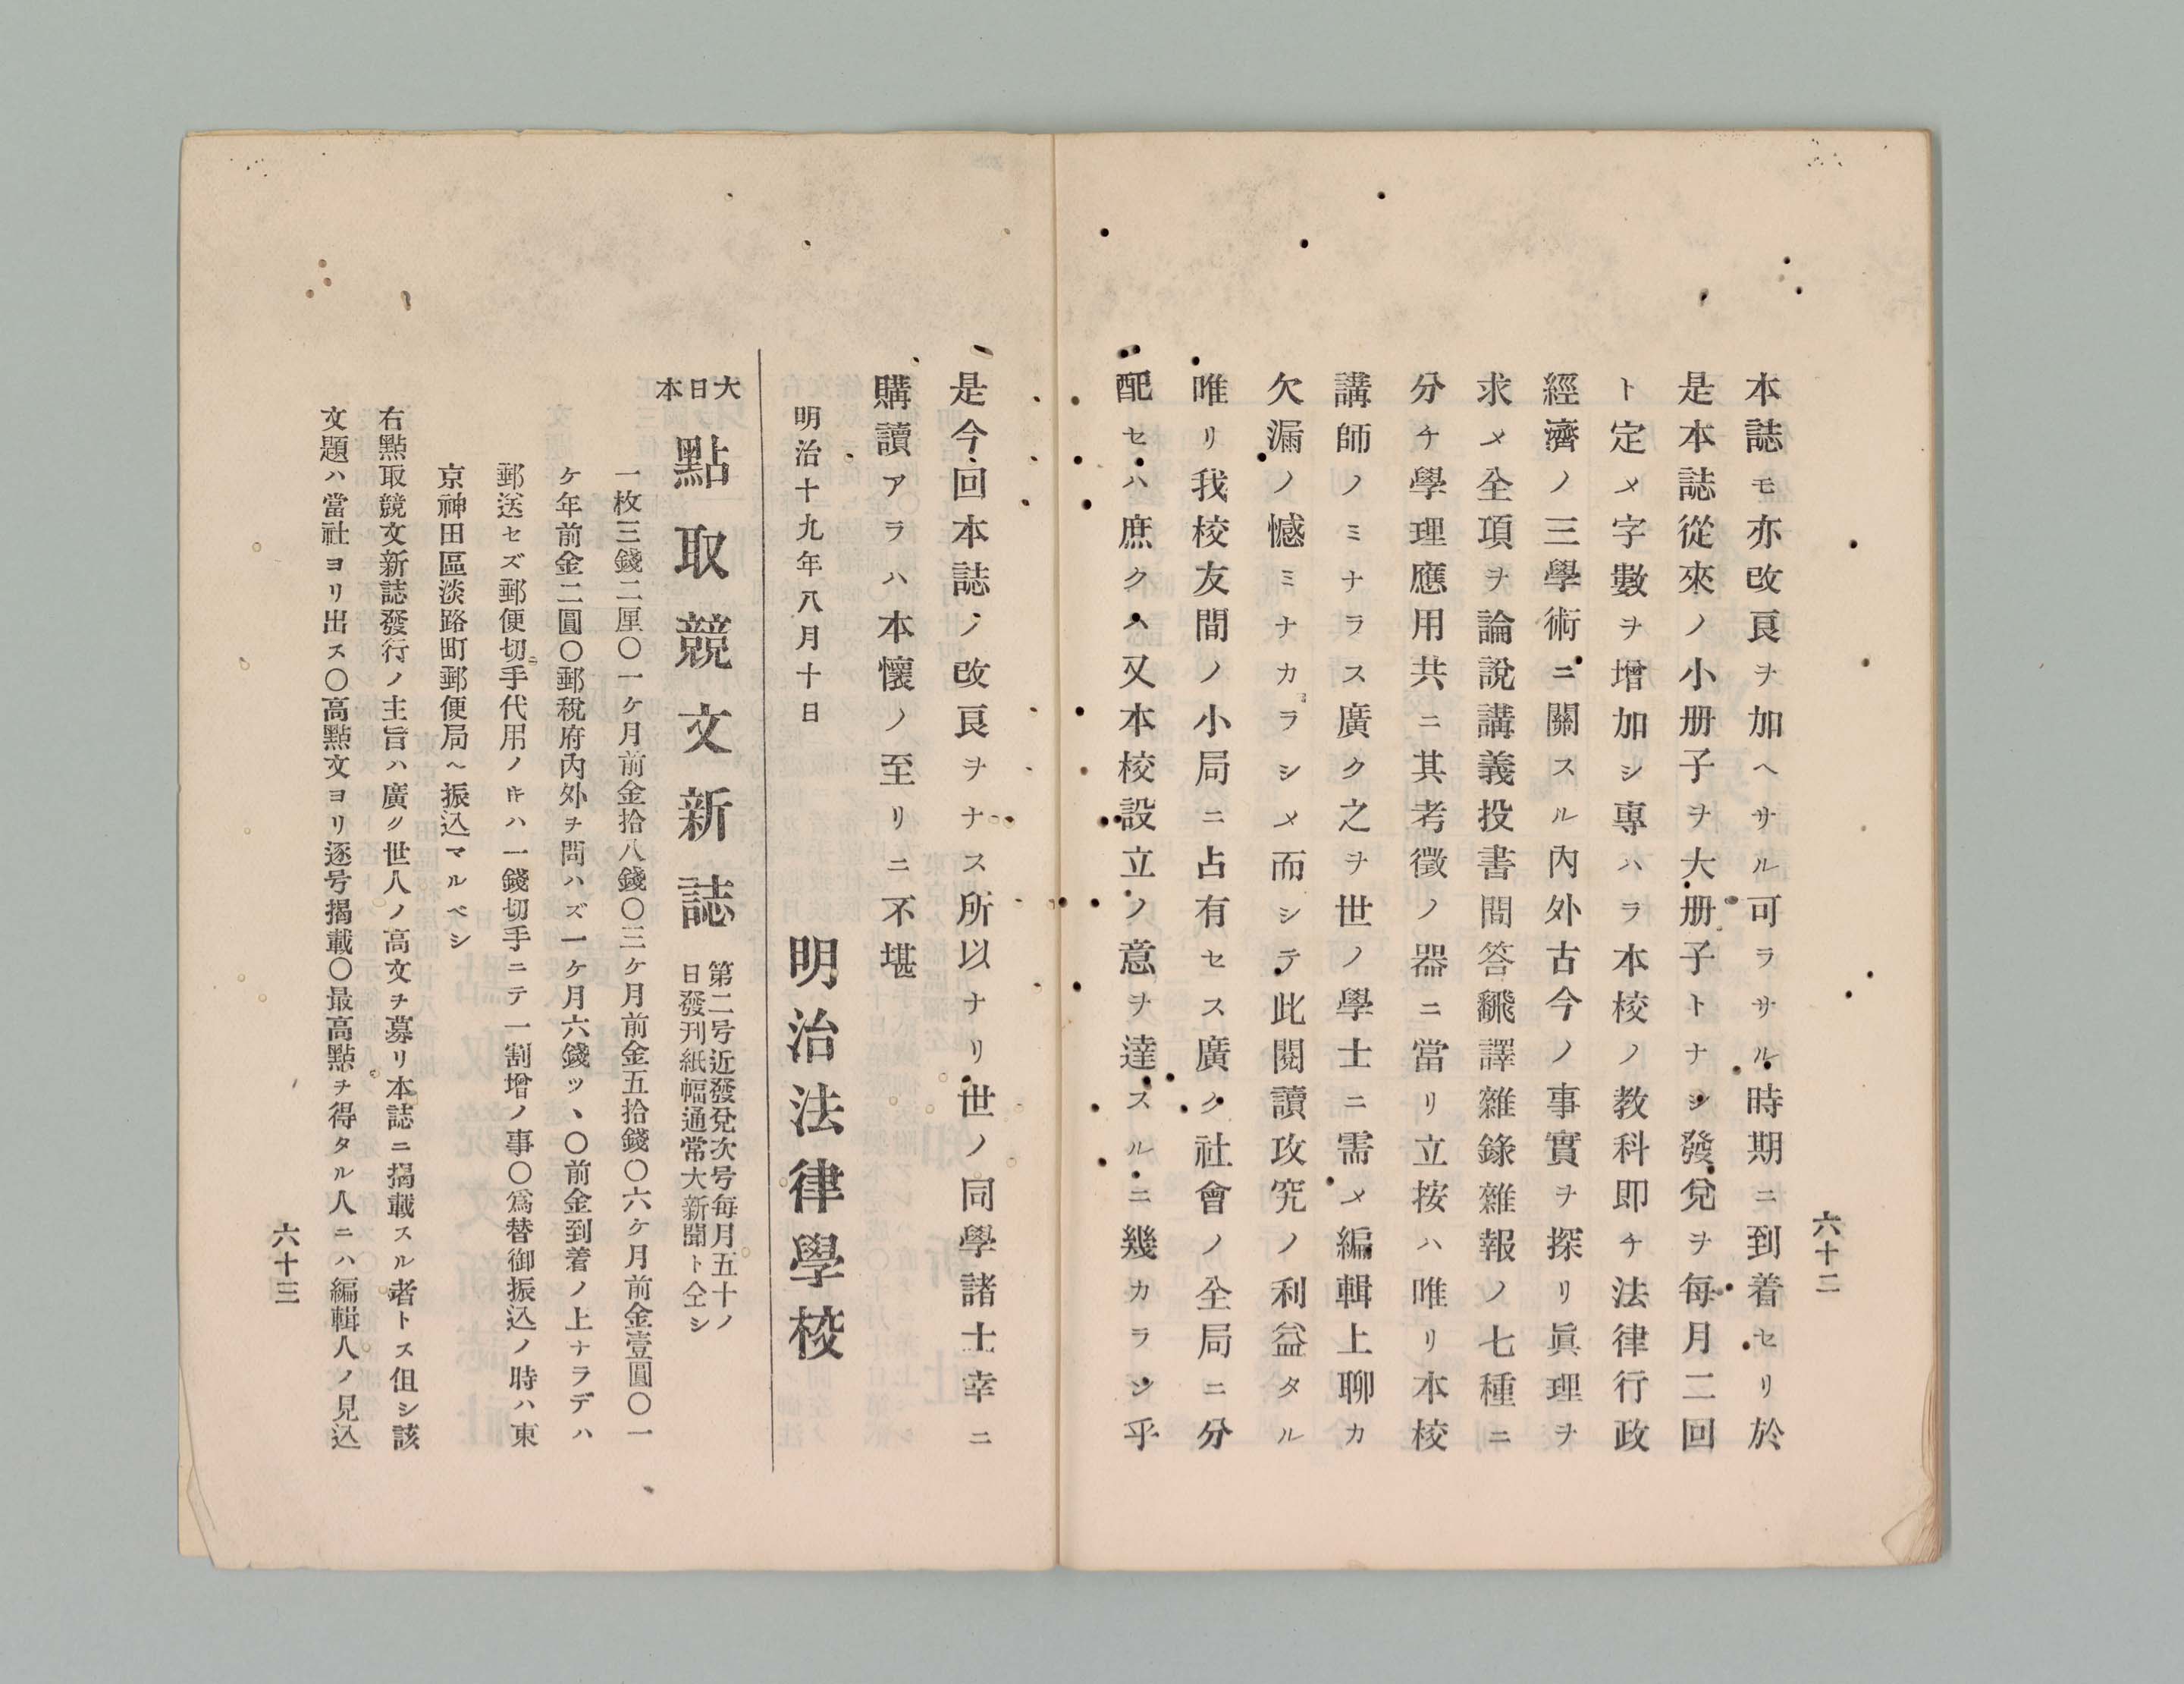 六十二
本誌モ亦改良ヲ加ヘサル可ラサル時期ニ到着セリ於
是本誌從來ノ小册子ヲ大册子トナシ發兌ヲ每月二回
ト定メ字數ヲ增加シ專ハラ本校ノ教科即チ法律行政
經濟ノ三學術ニ關スル內外古今ノ事實ヲ探リ眞理ヲ
求メ全項ヲ論說講義投書問答飜譯雜錄雜報ノ七種ニ
分チ學理應用共ニ其考徵ノ器ニ當リ立按ハ唯リ本校
講師ノミナラス廣ク之ヲ世ノ學士ニ需メ編輯上聊カ
欠漏ノ憾ミナカラシメ而シテ此閱讀攻究ノ利益タル
唯リ我校友間ノ小局ニ占有セス廣ク社會ノ全局ニ分
配セハ庶クハ又本校設立ノ意ヲ達スルニ幾カラン乎
是今回本誌ノ改良ヲナス所以ナリ世ノ同學諸士幸ニ
購讀アラハ本懷ノ至リニ不堪
明治十九年八月十日
明治法律學校
大日本
點取競文新誌
第二号近發兌次号每月五十ノ
日發刊紙幅通常大新聞ト仝シ
一枚三錢二厘〇一ケ月前金拾八錢〇三ケ月前金五拾錢〇六ケ月前金壹圓〇一
ケ年前金二圓〇郵稅府內外ヲ問ハズ一ケ月六錢ツヽ〇前金到着ノ上ナラデハ
郵送セズ郵便切手代用ノ𪜈ハ一錢切手ニテ一割增ノ事〇爲替御振込ノ時ハ東
京神田區淡路町郵便局ヘ振込マルベシ
右點取競文新誌發行ノ主旨ハ廣ク世人ノ高文チ募リ本誌ニ揭載スル者トス伹シ該
文題ハ當社ヨリ出ス〇高點文ヨリ逐号揭載〇最高點チ得タル人ニハ編輯人ノ見込
六十三